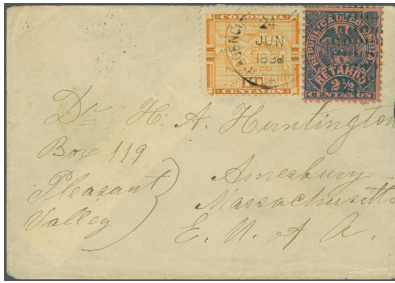 COLOMBIA
CENTAVOS
AGENCIA
JUN
REPUBLICA DE COLOMBIA
RETARDO
2 1/2
CENTAVOS
Dr. H. A. Huntington
Box 119
Pleasant
Valley
Amesbury
Massachusetts
E. U. A.